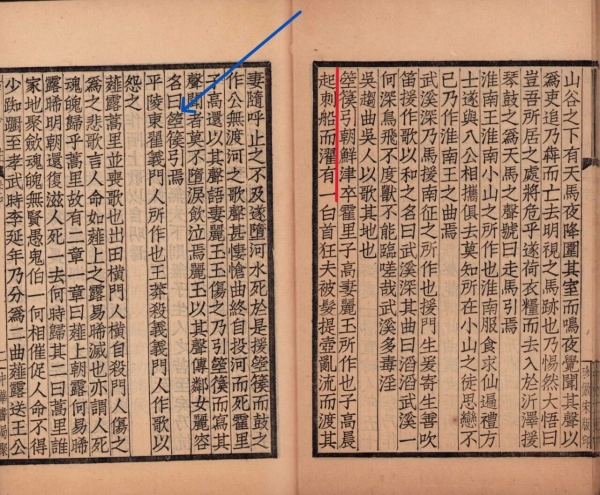 山谷之下有天馬夜降圍其室而鳴夜覺聞其聲以
爲吏追乃犇而亡去明視之馬跡也乃惕然大悟曰
豈吾所居之處將危乎遂荷衣糧而去入於沂澤援
琴鼓之爲天馬之聲號曰走馬引焉
淮南王淮南小山之所作也淮南服食求仙遍禮方
士遂與八公相攜俱去莫知所在小山之徒思戀不
已乃作淮南王之曲焉
武溪深乃馬援南征之所作也援門生爰寄生善吹
笛援作歌以和之名曰武溪深其曲曰滔滔武溪一
何深鳥飛不度獸不能臨嗟哉武溪多毒淫
吳趨曲吳人以歌其地也
箜篌引朝鮮津卒霍里子高妻麗玉所作也子高晨
起刺船而濯有一白首狂夫被髮提壺亂流而渡其
妻隨呼止之不及遂墮河水死於是援箜篌而鼓之
作公無渡河之歌聲甚悽愴曲終自投河而死霍里
子高還以其聲語妻麗玉玉傷之乃引箜篌而寫其
聲聞者莫不墮淚飲泣焉麗玉以其聲傳鄰女麗容
名曰箜篌引焉
平陵東翟義門人所作也王莽殺義義門人作歌以
怨之
薤露蒿里並喪歌也出田橫門人橫自殺門人傷之
爲之悲歌言人命如薤上之露易晞滅也亦謂人死
魂魄歸乎蒿里故有二章一章曰薤上朝露何易晞
露晞明朝還復滋人死一去何時歸其二曰蒿里誰
家地聚斂魂魄無賢愚鬼伯一何相催促人命不得
少踟躕至孝武時李延年乃分爲二曲薤露送王公